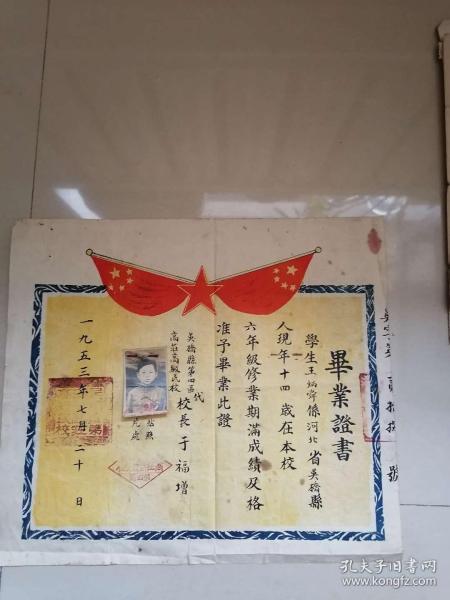 畢業證書
學生王炳舜係河北省吴橋縣
人現年十四歲在本校
六年級修業期滿成績及格
准予畢業此證
吴橋縣第四區
高莊高級民校
代
校長于福增
一九五三年七月二十日
號
孔夫子旧书网
www.kongfz.com